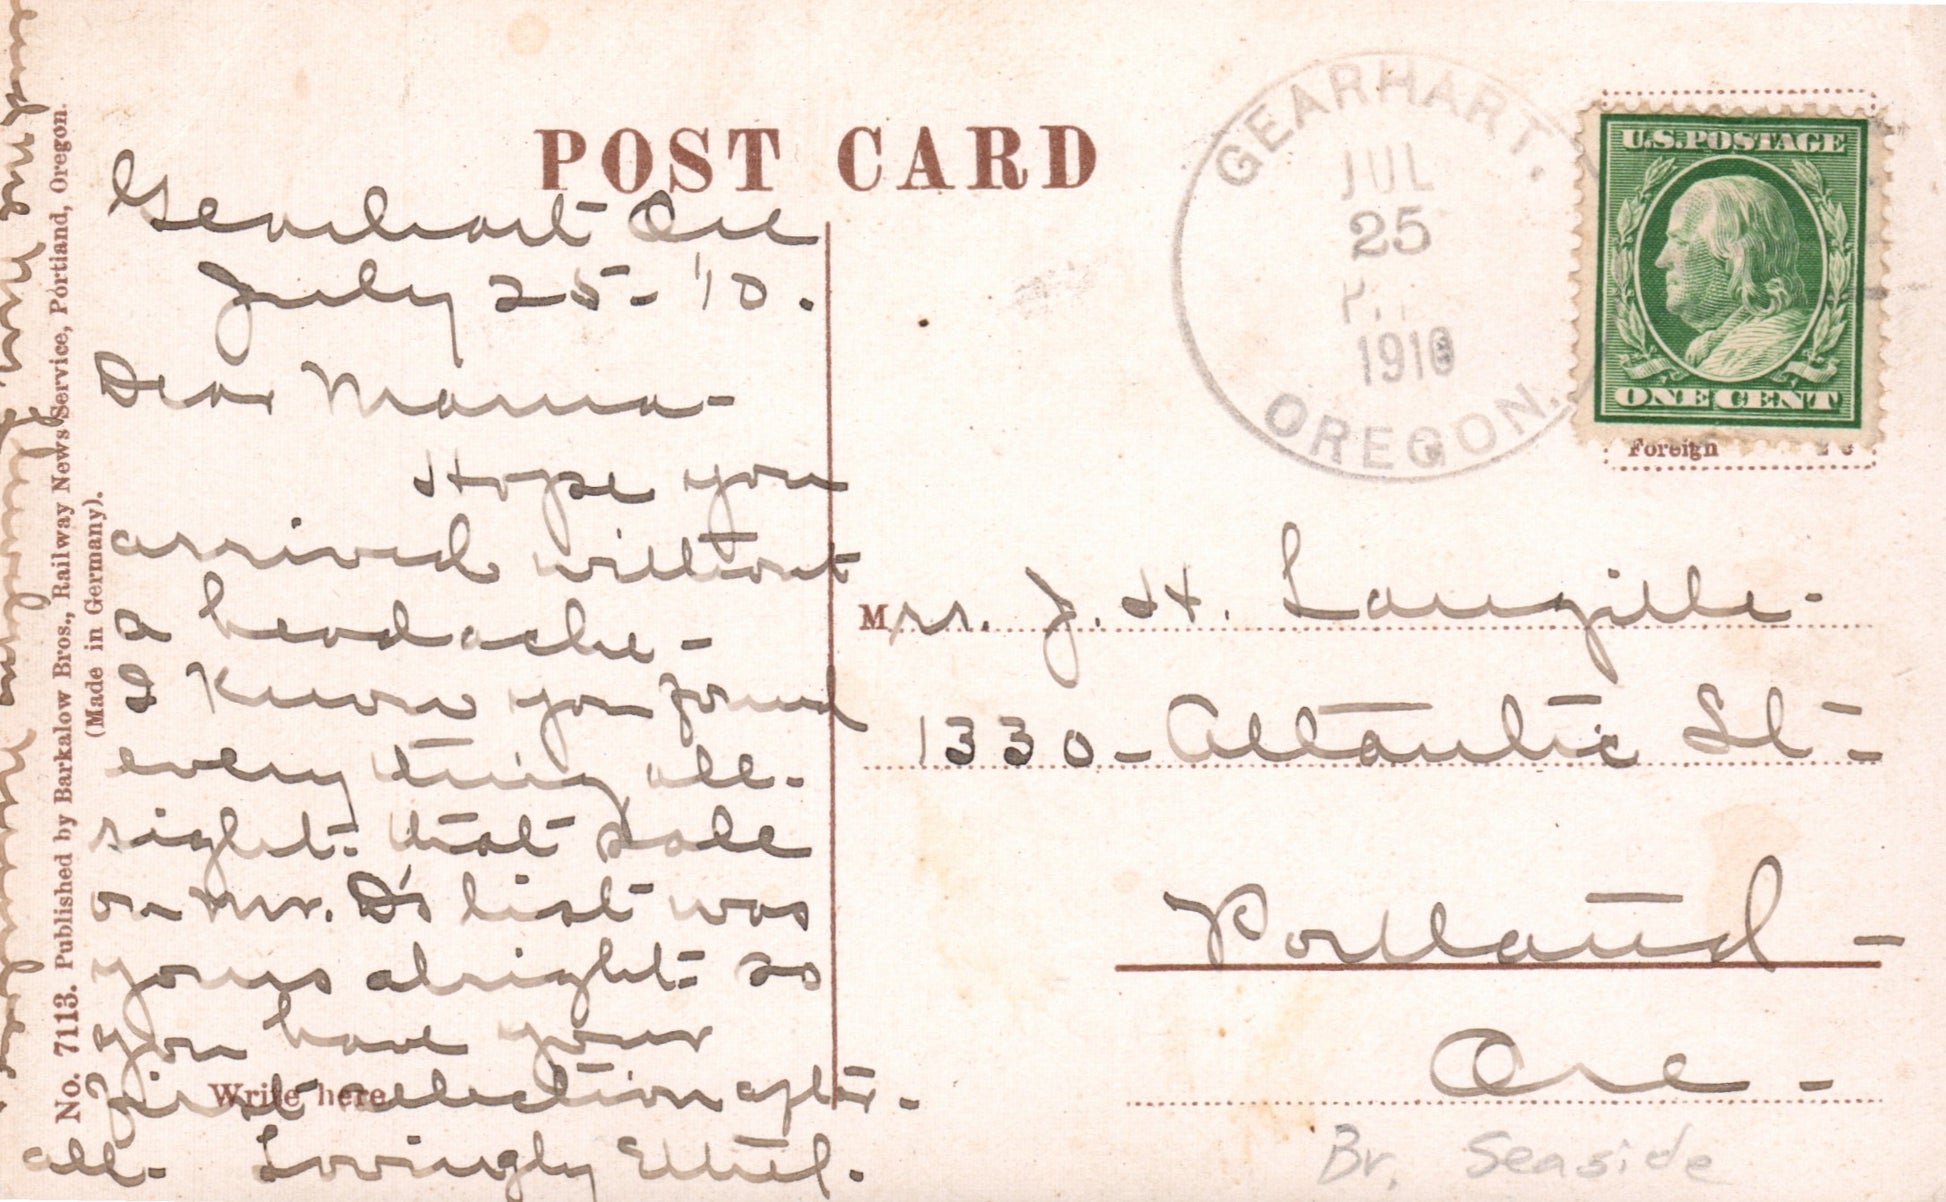 POST CARD
GEARHART,
JUL
25
1910
OREGON.
U.S.POSTAGE
ONE CENT
Foreign
Gearhart Ore
July 25- '10.
Dear Mama-
Hope you
arrived without
a headache-
I know you found
every thing all-
right- that sale
on Mr. D's list was
yours alright- so
you have your
first selection after-
all- Lovingly Ethel.
Write here
Mrs. J. H. Langille-
1330- Atlantic St-
Portland-
Ore-
Br. Seaside
No. 7113. Published by Barkalow Bros., Railway News Service, Portland, Oregon.
(Made in Germany).
send me